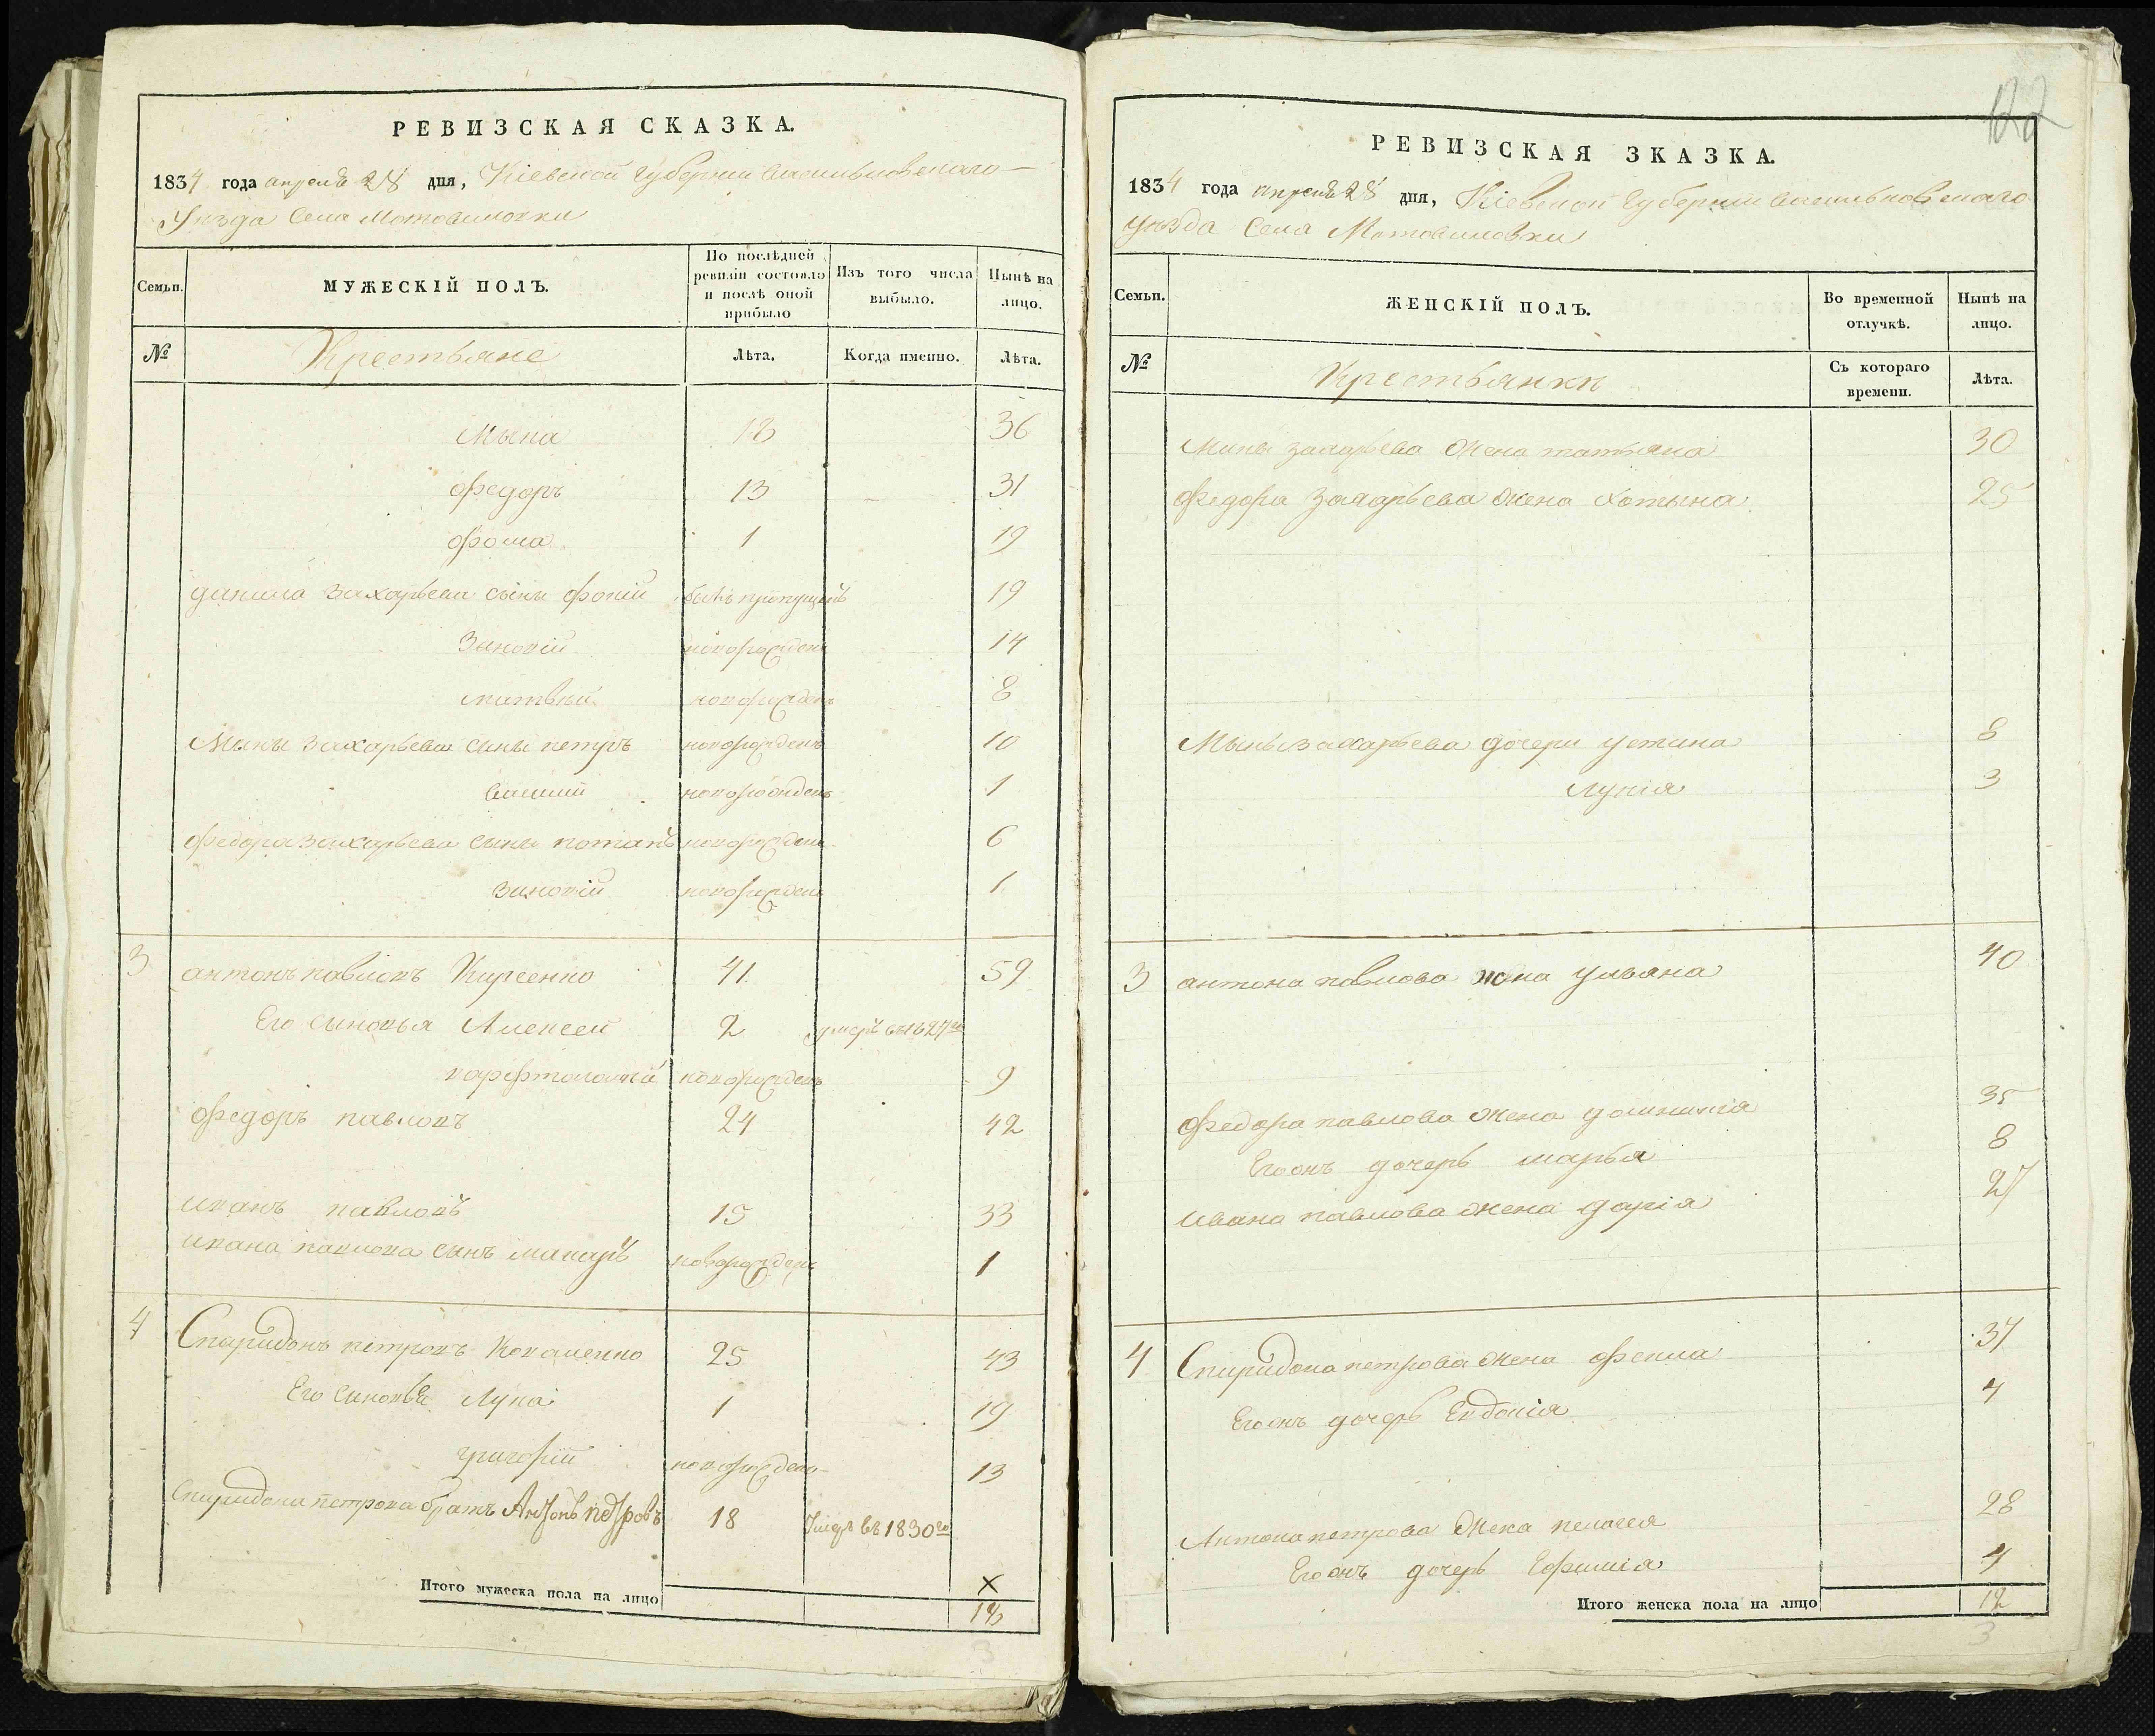 РЕВИЗСКАЯ СКАЗКА.
1834 года апреля 28 дня, Кіевской Губерніи Васильковскаго
Уезда Села Мотовиловки
Семьи.
МУЖЕСКІЙ ПОЛЪ.
По послѣдней ревизіи состояло и послѣ оной прибыло
Изъ того числа выбыло.
Нынѣ на лицо.
№
Крестьяне
Лѣта.
Когда именно.
Лѣта.
Мына 18 36
Федоръ 13 31
Фома 1 19
Данила Захарьева сыны Фокій былъ пропущенъ 19
Зиновій новорожденъ 14
Матвѣй новорожденъ 8
Мины Захарьева сыны Петръ новорожденъ 10
новорожденъ 1
Федора Захарьева сыны Потапъ новорожденъ 6
Зиновій новорожденъ 1
3 Антонъ Павловъ 41 59
Его сыновья Алексей 2 умеръ въ 1827го
Варфтоломей новорожденъ 9
Федоръ Павловъ 24 42
Иванъ Павловъ 15 33
Ивана Павлова сынъ Макаръ новорожденъ 1
4 Спиридонъ Петровъ Коваленко 25 43
Его сыновья Лука 1 19
Григорій новорожденъ 13
Спиридона Петрова братъ Антонъ Петровъ 18 Умеръ въ 1830го
Итого мужеска пола на лицо
X
122
РЕВИЗСКАЯ ЗКАЗКА.
1834 года апреля 28 дня, Кіевской Губерніи Васильковскаго
уѣзда Села Мотовиловки
Семьи.
ЖЕНСКІЙ ПОЛЪ.
Во временной отлучкѣ.
Нынѣ на лицо.
№
Крестьянки
Съ котораго времени.
Лѣта.
Мины Захарьева жена Татьяна 30
Федора Захарьева жена Хотына 25
Мыны Захарьева дочери Устина 8
Лукія 3
3 Антона Павлова жена Ульяна 40
Федора Павлова жена Домникія 35
Егоонъ дочерь Марья 8
Ивана Павлова жена Дарія 27
4 Спиридона Петрова жена Фекла 37
Егоонъ дочерь Евдокія 4
Антона Петрова жена Пелагея 28
Егоонъ дочерь Ефимія 4
Итого женска пола на лицо 12
3